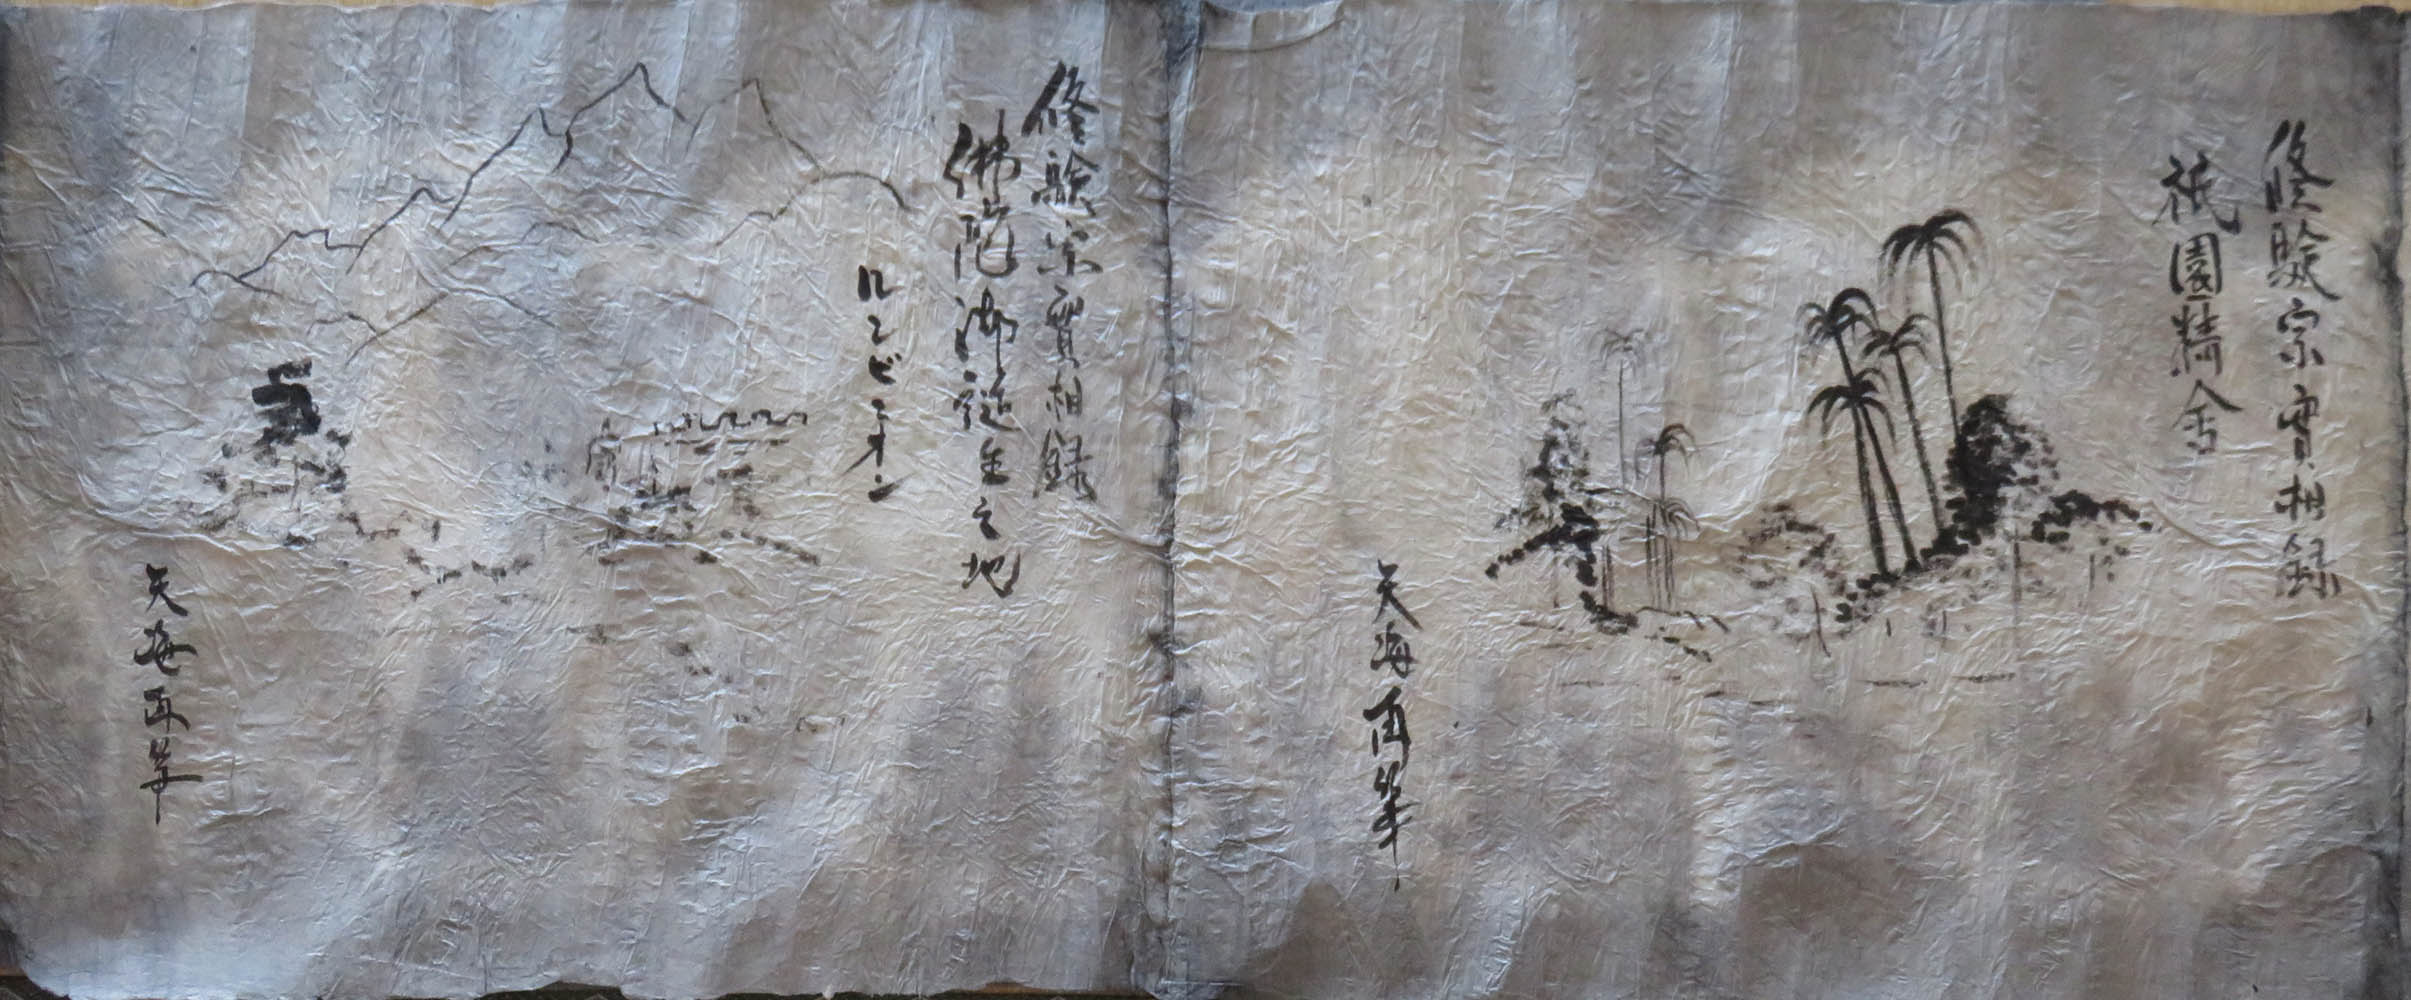 修験宗實相録
祇園精舎
天海再筆
修験宗實相録
佛陀御誕生之地
ルンビニオン
天海再筆